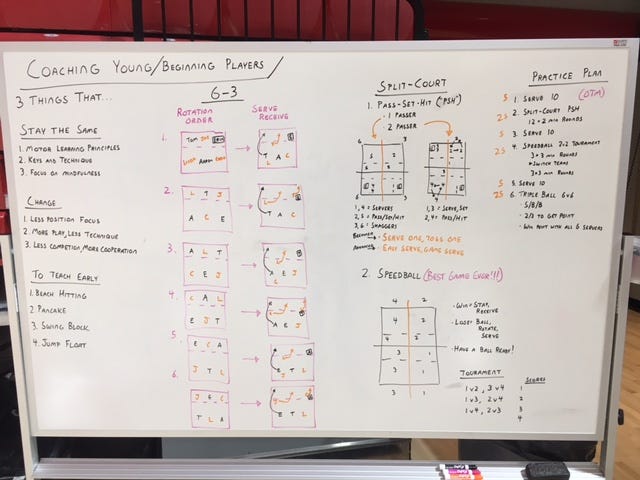 Coaching Young/Beginning Players
3 Things That...
Stay The Same
1. Motor Learning Principles
2. Keys and Technique
3. Focus on Mindfulness
Change
1. Less Position Focus
2. More Play, Less Technique
3. Less Competion, More Cooperation
To Teach Early
1. Beach Hitting
2. Pancake
3. Swing Block
4. Jump Float
6-3
Rotation Order
Serve Receive
1.
Tom
T A C
2.
L T J
A C E
T A C
3.
A L T
C E J
4.
C A L
E J T
A E J
5.
E C A
J T L
E J T
6.
J E C
T L A
E T L
Split-Court
1. Pass-Set-Hit ("PSH")
- 1 Passer
- 2 Passer
1, 4 = Servers
2, 5 = Pass/Set/Hit
3, 6 = Shaggers
1, 3 = Serve, Set
2, 4 = Pass/Hit
Beginner - Serve One, Toss One
Advanced - Easy Serve, Game Serve
2. Speedball (Best Game Ever!!!)
4 2
4 2
4
3 1
3 1
3 1
• Win = Stay, Receive
• Lose = Ball, Rotate, Serve
• Have A Ball Ready!
Tournament
1 v 2, 3 v 4
1 v 3, 2 v 4
1 v 4, 2 v 3
Scores
1
2
3
4
Practice Plan
(OTM)
5 1. Serve 10
25 2. Split-Court PSH
12 × 2 min Rounds
5 3. Serve 10
25 4. Speedball 2v2 Tournament
3 × 3 min Rounds
Switch Teams
3 × 3 min Rounds
5 5. Serve 10
25 6. Triple Ball 6v6
- S/B/B
- 2/3 to Get Point
- Win Point with All 6 Servers